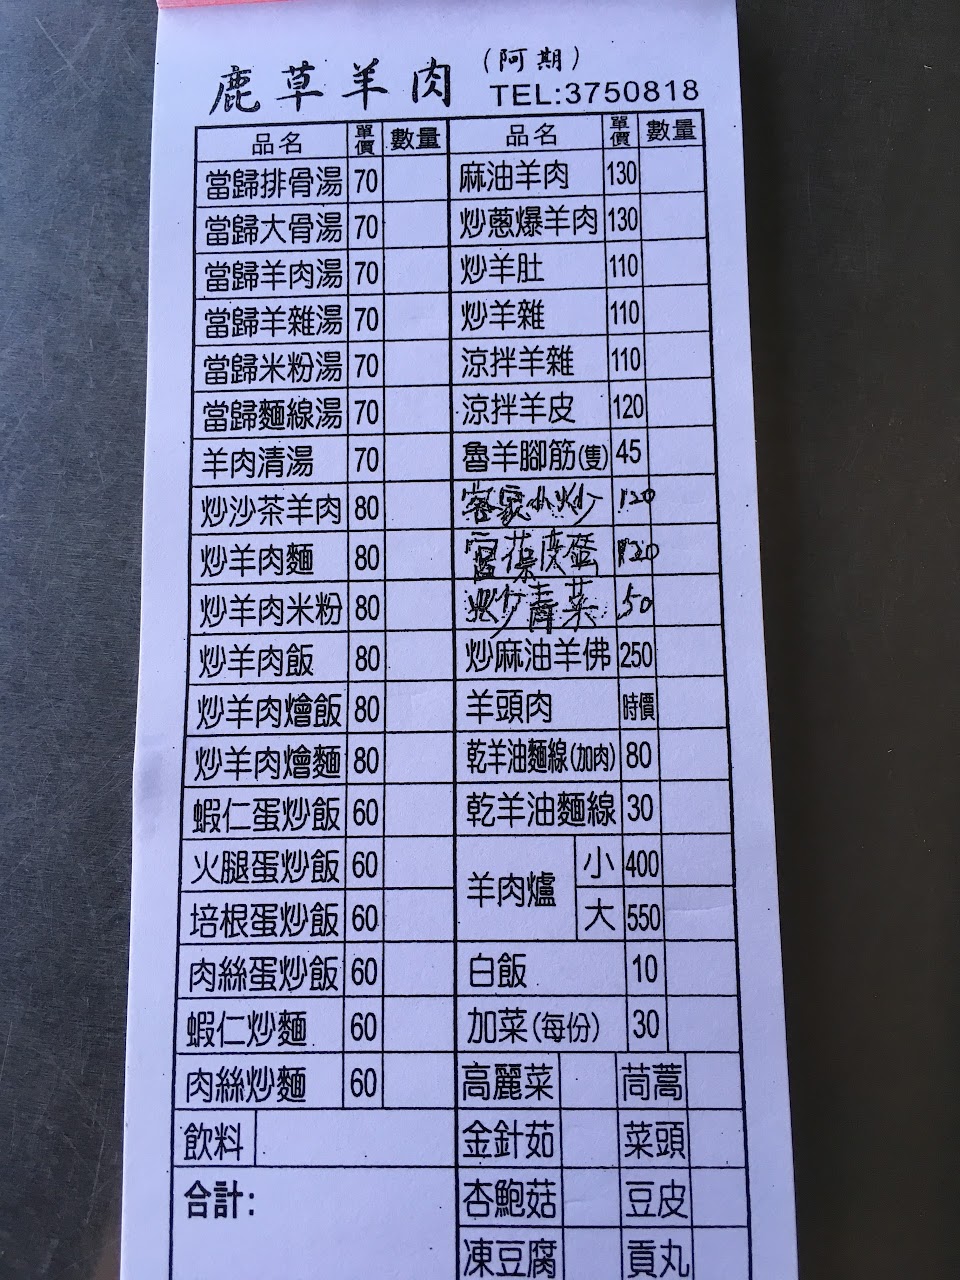 鹿草羊肉 (阿期)
TEL:3750818
品名 單價 數量
當歸排骨湯 70
當歸大骨湯 70
當歸羊肉湯 70
當歸羊雜湯 70
當歸米粉湯 70
當歸麵線湯 70
羊肉清湯 70
炒沙茶羊肉 80
炒羊肉麵 80
炒羊肉米粉 80
炒羊肉飯 80
炒羊肉燴飯 80
炒羊肉燴麵 80
蝦仁蛋炒飯 60
火腿蛋炒飯 60
培根蛋炒飯 60
肉絲蛋炒飯 60
蝦仁炒麵 60
肉絲炒麵 60
飲料
合計:
品名 單價 數量
麻油羊肉 130
炒蔥爆羊肉 130
炒羊肚 110
炒羊雜 110
涼拌羊雜 110
涼拌羊皮 120
魯羊腳筋(隻) 45
客家小炒 120
宮保皮蛋 120
炒青菜 50
炒麻油羊佛 250
羊頭肉 時價
乾羊油麵線(加肉) 80
乾羊油麵線 30
羊肉爐 小 400
大 550
白飯 10
加菜(每份) 30
高麗菜 茼蒿
金針茹 菜頭
杏鮑菇 豆皮
凍豆腐 貢丸